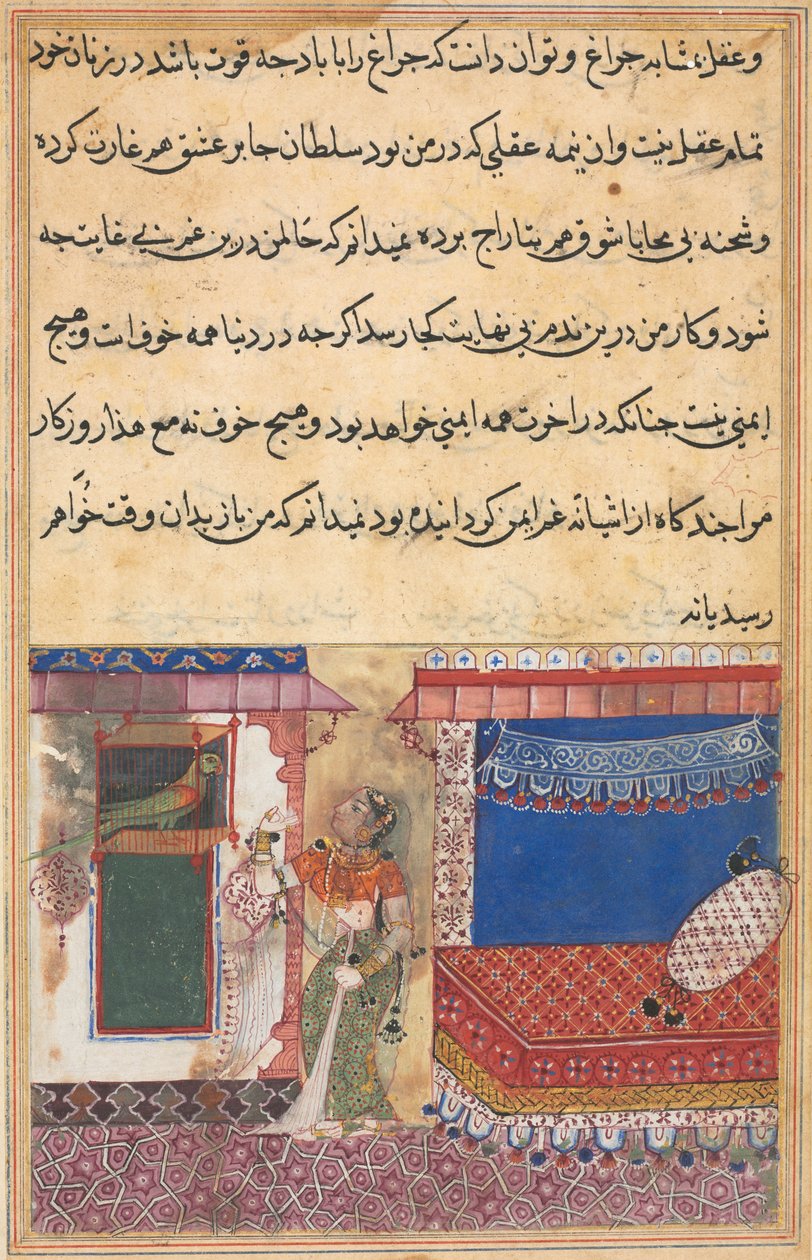 و عقل بمشابه جراغ و توان دانست که جراغ را با باد جه قوت باشد در زنان خود
تمام عقل نیست وان نیمه عقلی که در من بود سلطان جابر عشق هم غارت کرده
و شحنه بی محابا شوق هم بتاراج برده نمیدانم که حال من درین غم بی غایت جه
شود و کار من درین ندم بی نهایت کجا رسد اکر جه در دنیا همه خوف است و هیج
ایمنی نیست جنانکه در اخرت همه ایمنی خواهد بود و هیج خوف نه مع هذا روزکار
مرا جند کاه از اشیانه غم ایمن کردانیده بود نمیدانم که من باز بدان وقت خواهم
رسید یا نه